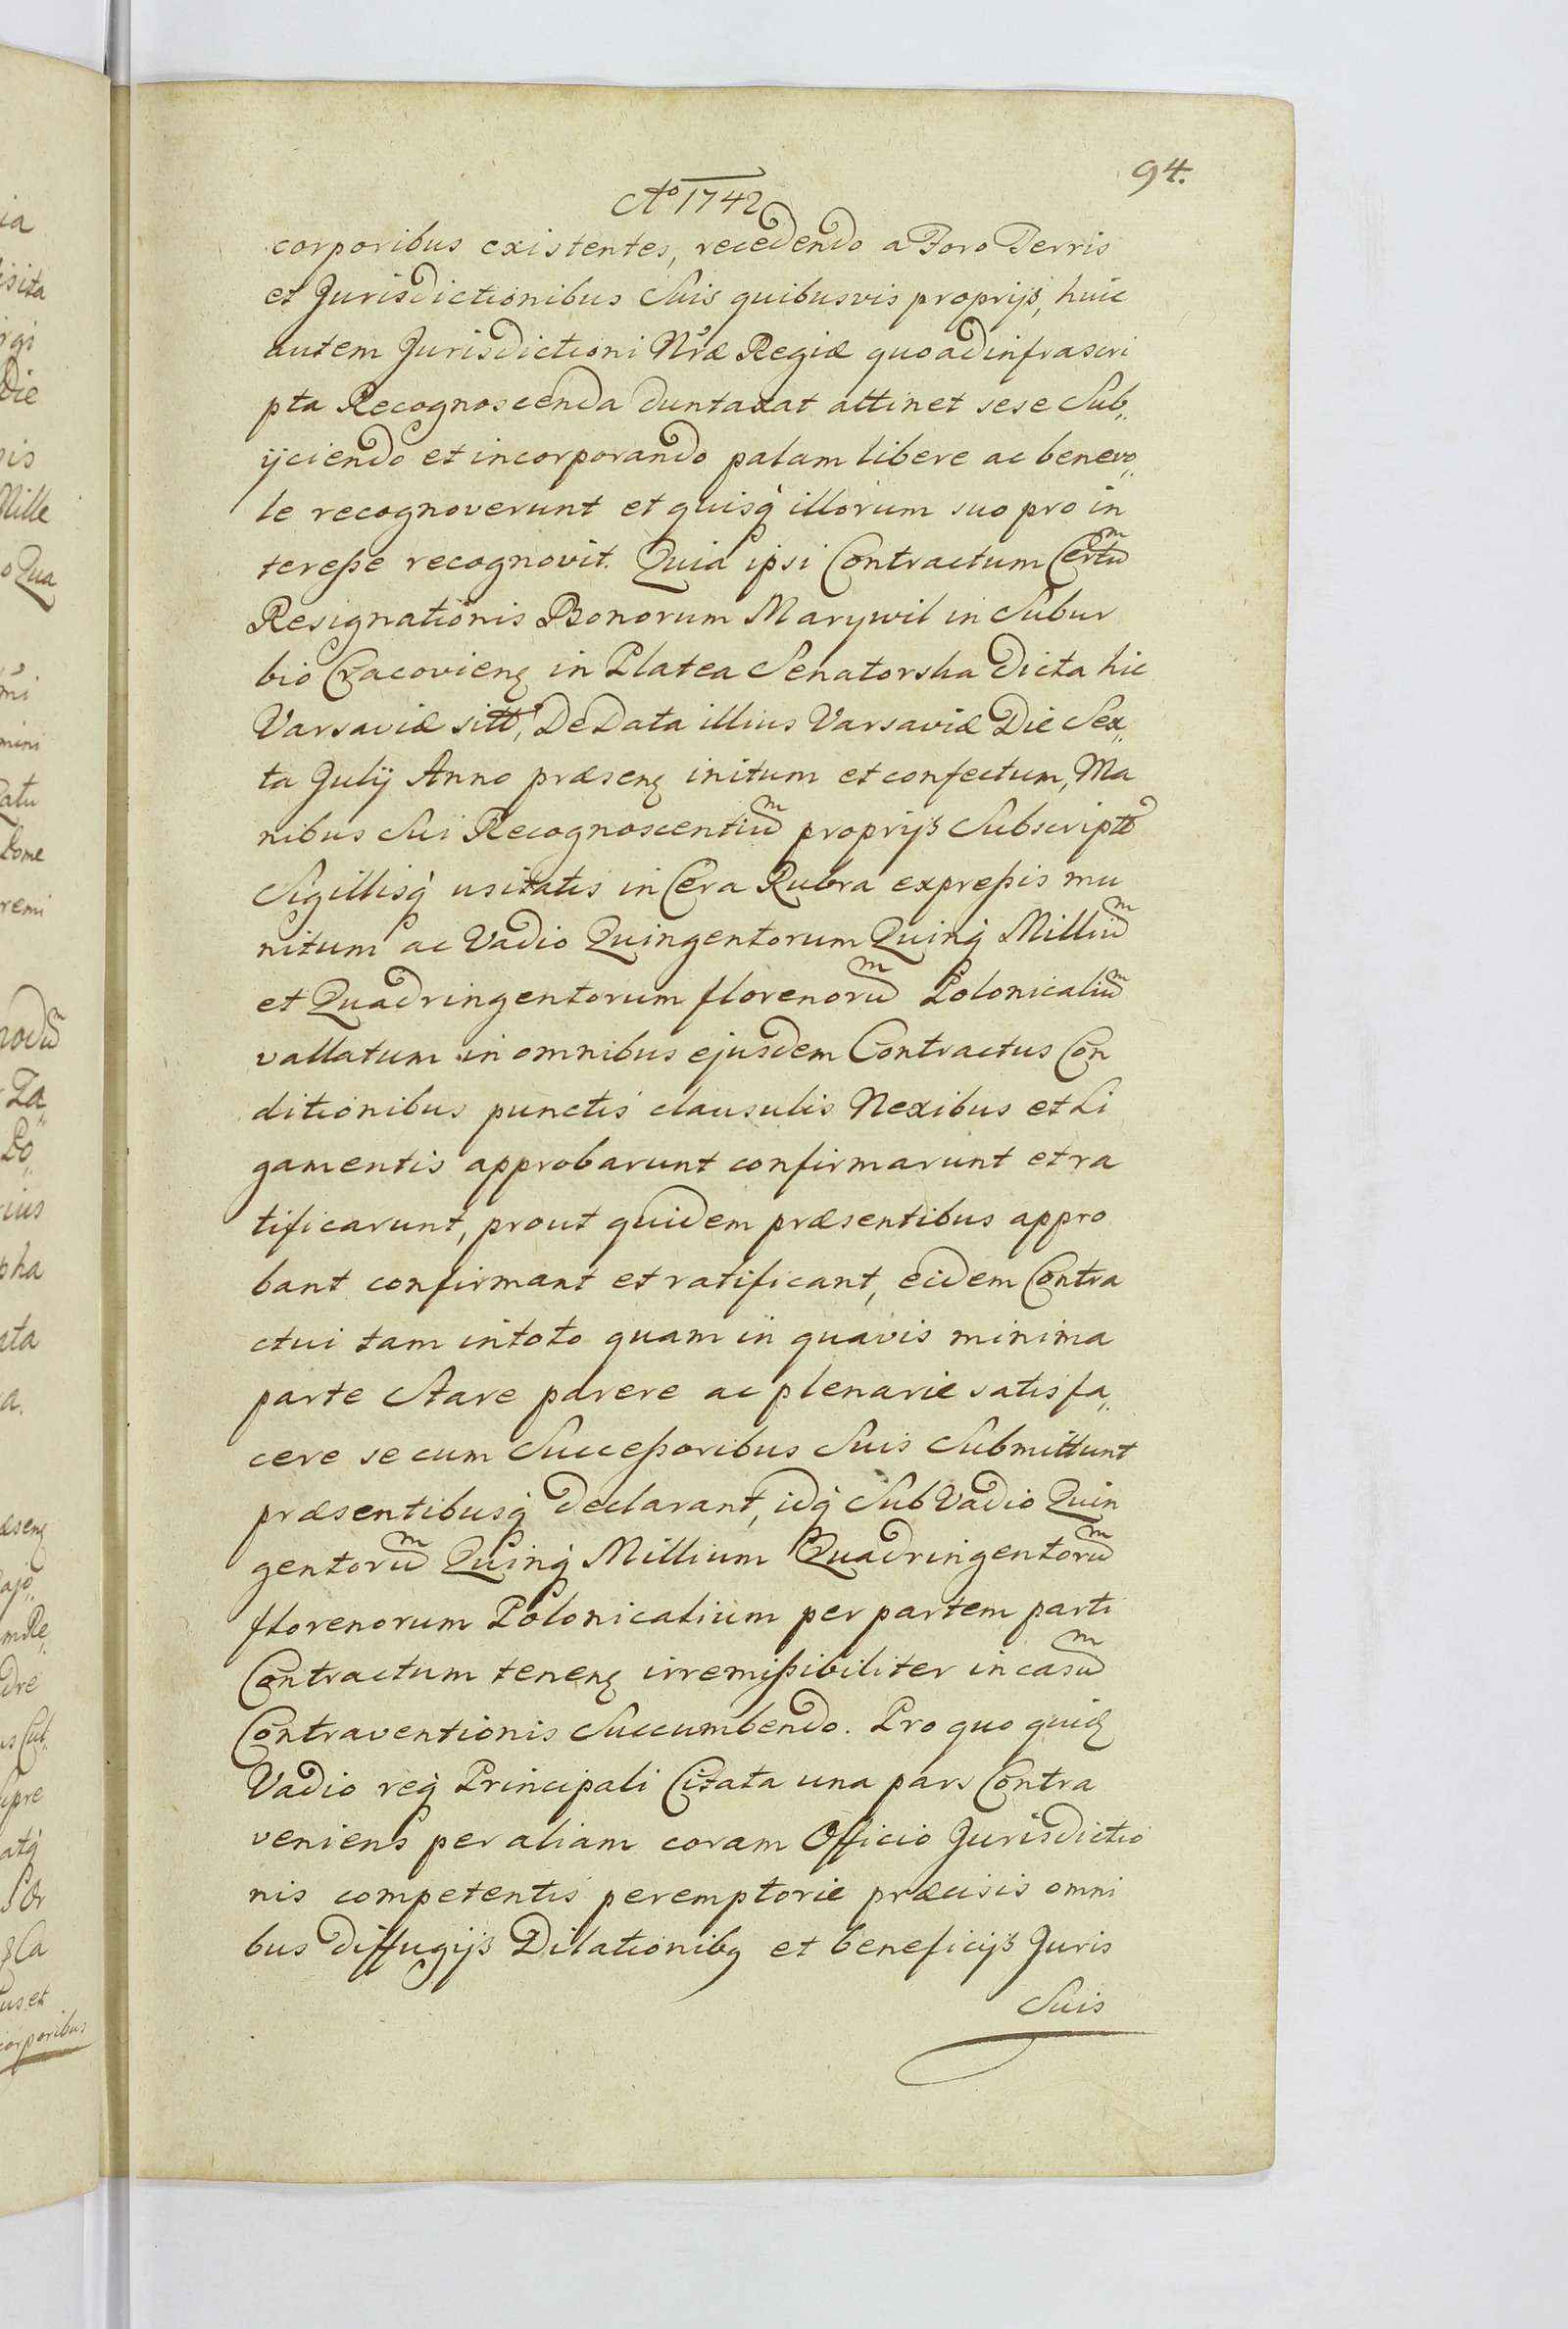 94.
Aº 1742
corporibus existentes, recedendo a Foro Terris
et Jurisdictionibus Suis quibusvis proprijs, huic
autem Jurisdictioni Nræ Regiæ quoad infrascri
pta Recognoscenda duntaxat attinet sese Sub„
ijciendo et incorporando palam libere ac benevo„
le recognoverunt et quisq́ illorum suo pro in
teresse recognovit. Quia ipsi Contractum Certum
Resignationis Bonorum Marywil in Subur
bio Cracovienꝫ in Platea Senatorska Dicta hic
Varsaviæ sitt, De Data illius Varsaviæ Die Sex„
ta Julij Anno præsenꝫ initum et confectum, Ma
nibus Sui Recognoscentium proprijs Subscript
Sigillisq́ usitatis in Cera Rubra expressis mu
nitum ac Vadio Quingentorum Quinq́ Millium
et Quadringentorum florenorum Polonicalium
vallatum in omnibus ejusdem Contractus Con
ditionibus punctis clausulis Nexibus et Li
gamentis approbarunt confirmarunt et ra
tificarunt, prout quidem præsentibus appro
bant confirmant et ratificant, eidem Contra
ctui tam in toto quam in quavis minima
parte Stare parere ac plenarie satisfa„
cere se cum Successoribus Suis Submittunt
præsentibusq́ declarant, idq́ Sub Vadio Quin
gentorum Quinq́ Millium Quadringentorum
florenorum Polonicalium per partem parti
Contractum tenenꝫ irremissibiliter in casum
Contraventionis Succumbendo. Pro quo quidꝫ
Vadio req́ Principali Citata una pars Contra
veniens per aliam coram Officio Jurisdictio
nis competentis peremptorie præcisis omni
bus diffugijs Dilationibꝫ et beneficijs Juris
Suis